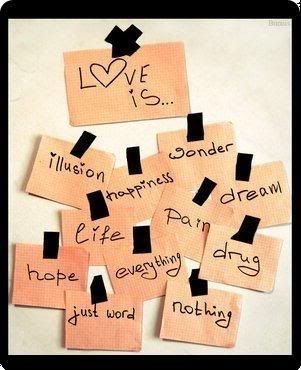 L♡VE
is...
wonder
illusion
happiness
dream
Pain
life
drug
everything
hope
just word
nothing